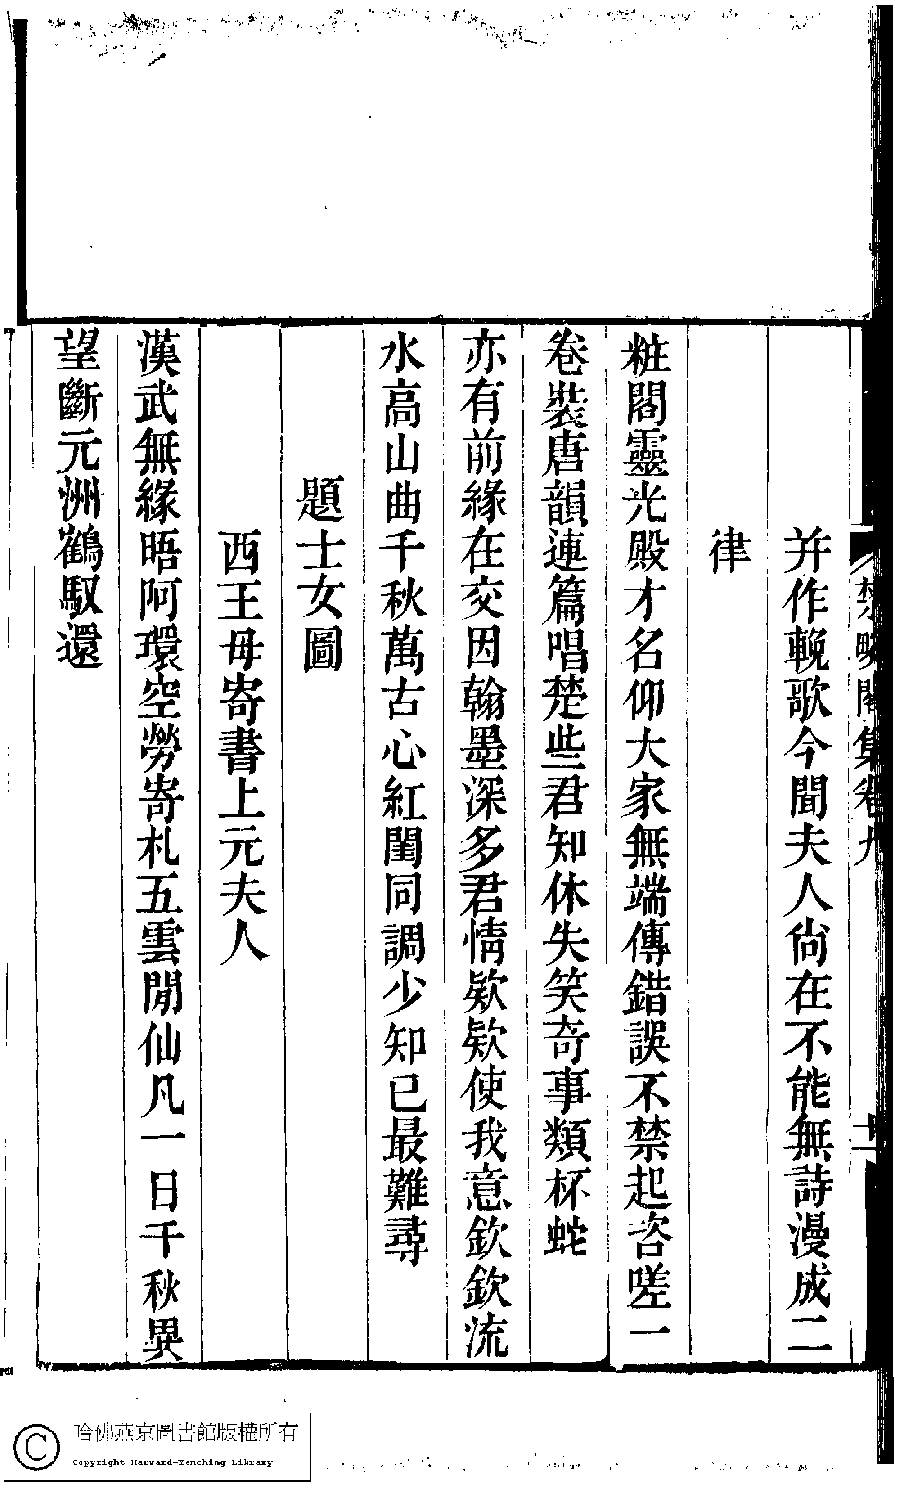 并作輓歌今聞夫人尙在不能無詩漫成二
律
粧閣靈光殿才名仰大家無端傳錯誤不禁起咨嗟一
卷裝唐韻連篇唱楚些君知休失笑奇事類杯蛇
亦有前緣在交因翰墨深多君情欵欵使我意欽欽流
水高山曲千秋萬古心紅閨同調少知已最難尋
題士女圖
西王母寄書上元夫人
漢武無緣晤阿環空勞寄札五雲閒仙凡一日千秋異
望斷元洲鶴馭還
集卷九
哈佛燕京圖書館版權所有
Copyright Harvard-Yenching Library